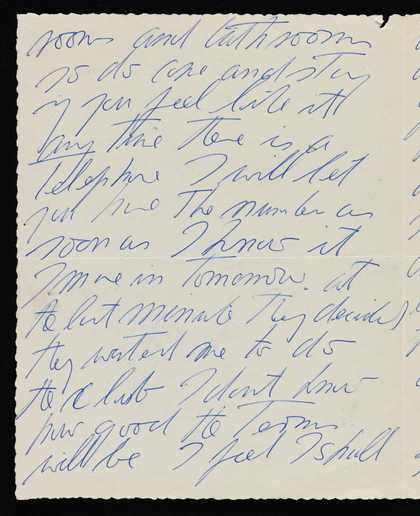 rooms and bathrooms
so do come and stay
if you feel like it
any time there is a
telephone I will let
you have the number as
soon as I know it
I move in tomorrow. at
the last minute they decided
they wanted me to do
the club I dont know
how good the Terms
will be I feel I shall